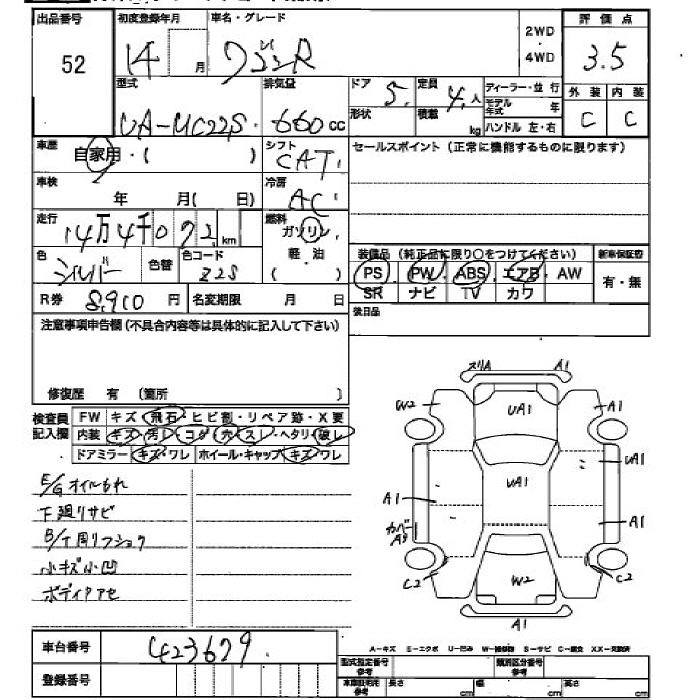 出品番号 初度登録年月 車名・グレード 2WD ・ 4WD 評価点
52 14 月 ワゴンR 3.5
型式 排気量 ドア 5 定員 4人 ディーラー・並行 外装 内装
UA-MC22S 660cc 形状 積載 kg モデル年式 年 C C
ハンドル 左・右
車歴 自家用・( ) シフト CAT セールスポイント (正常に機能するものに限ります)
車検 年 月( 日) 冷房 AC
走行 14万4千072km 燃料 ガソリン
色 シルバー 色替 色コード Z2S 軽・油 ( )
装備品 (純正品に限り○をつけてください) 新車保証書
PS PW ABS エアB AW 有・無
SR ナビ TV カワ
R券 8,910円 名変期限 月 日
後日品
注意事項申告欄 (不具合内容等は具体的に記入して下さい)
修復歴 有 (箇所 )
検査員記入欄 FW キズ・飛石・ヒビ割・リペア跡・X要
内装 キズ・汚レ・コゲ・穴・スレ・ヘタリ・破レ
ドアミラー キズ・ワレ ホイール・キャップ キズ・ワレ
E/Gオイルもれ
下廻リサビ
B/T周リフショク
小キズ小凹
ボディアセ
スリA A1
W2 UA1 A1
UA1
UA1
A1 A1
カバー
C2 W2 C2
A1
A-キズ E-エクボ U-凹ミ W-補修跡 S-サビ C-腐食 XX-交換済
車台番号 423679
登録番号
型式指定番号 参考 類別区分番号 参考
長さ cm 幅 cm 高さ cm